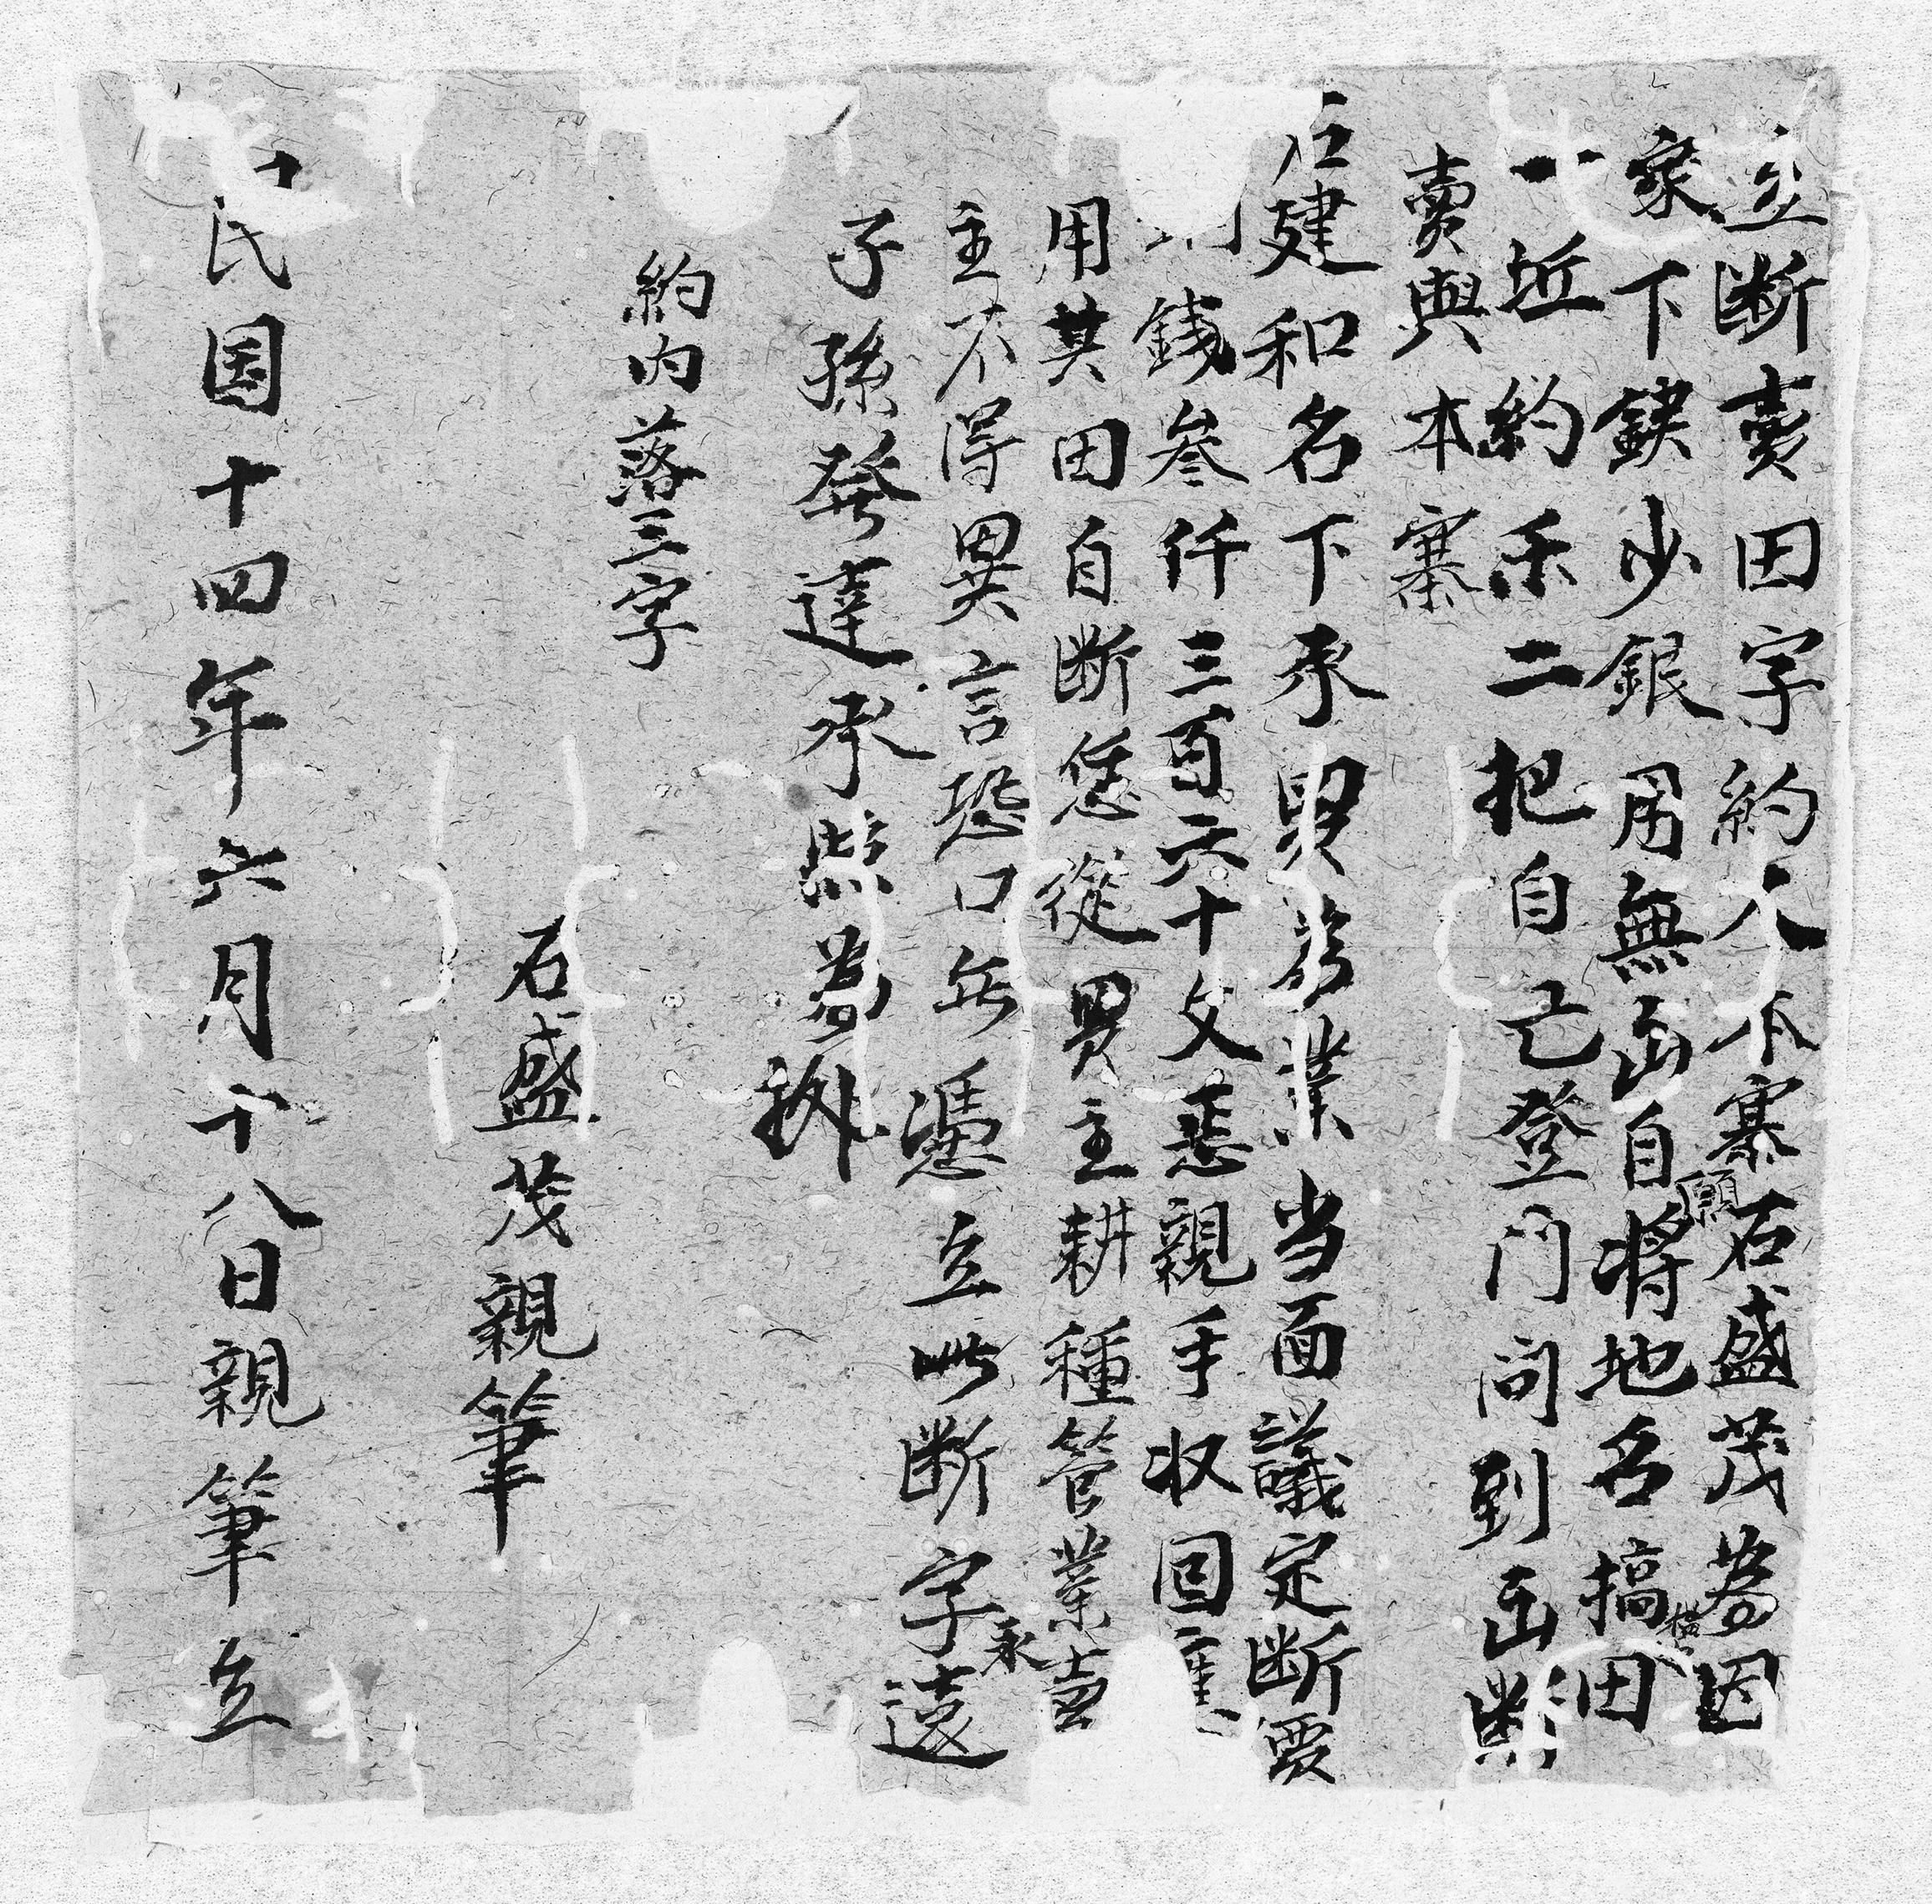 立断賣田字約人本寨石盛茂為因
家下缺少銀用無出自願将地名搞横田
一坵約禾二把自己登门问到出断
賣與本寨
石建和名下承買為業当面議定断價
錢叁仟三百六十文恁親手収回應
用其田自断恁從買主耕種管業賣
主不得異言恐口無憑立此断字永遠
子孫發達承照為拠
約内落三字
石盛茂親筆
民国十四年六月十八日親筆立